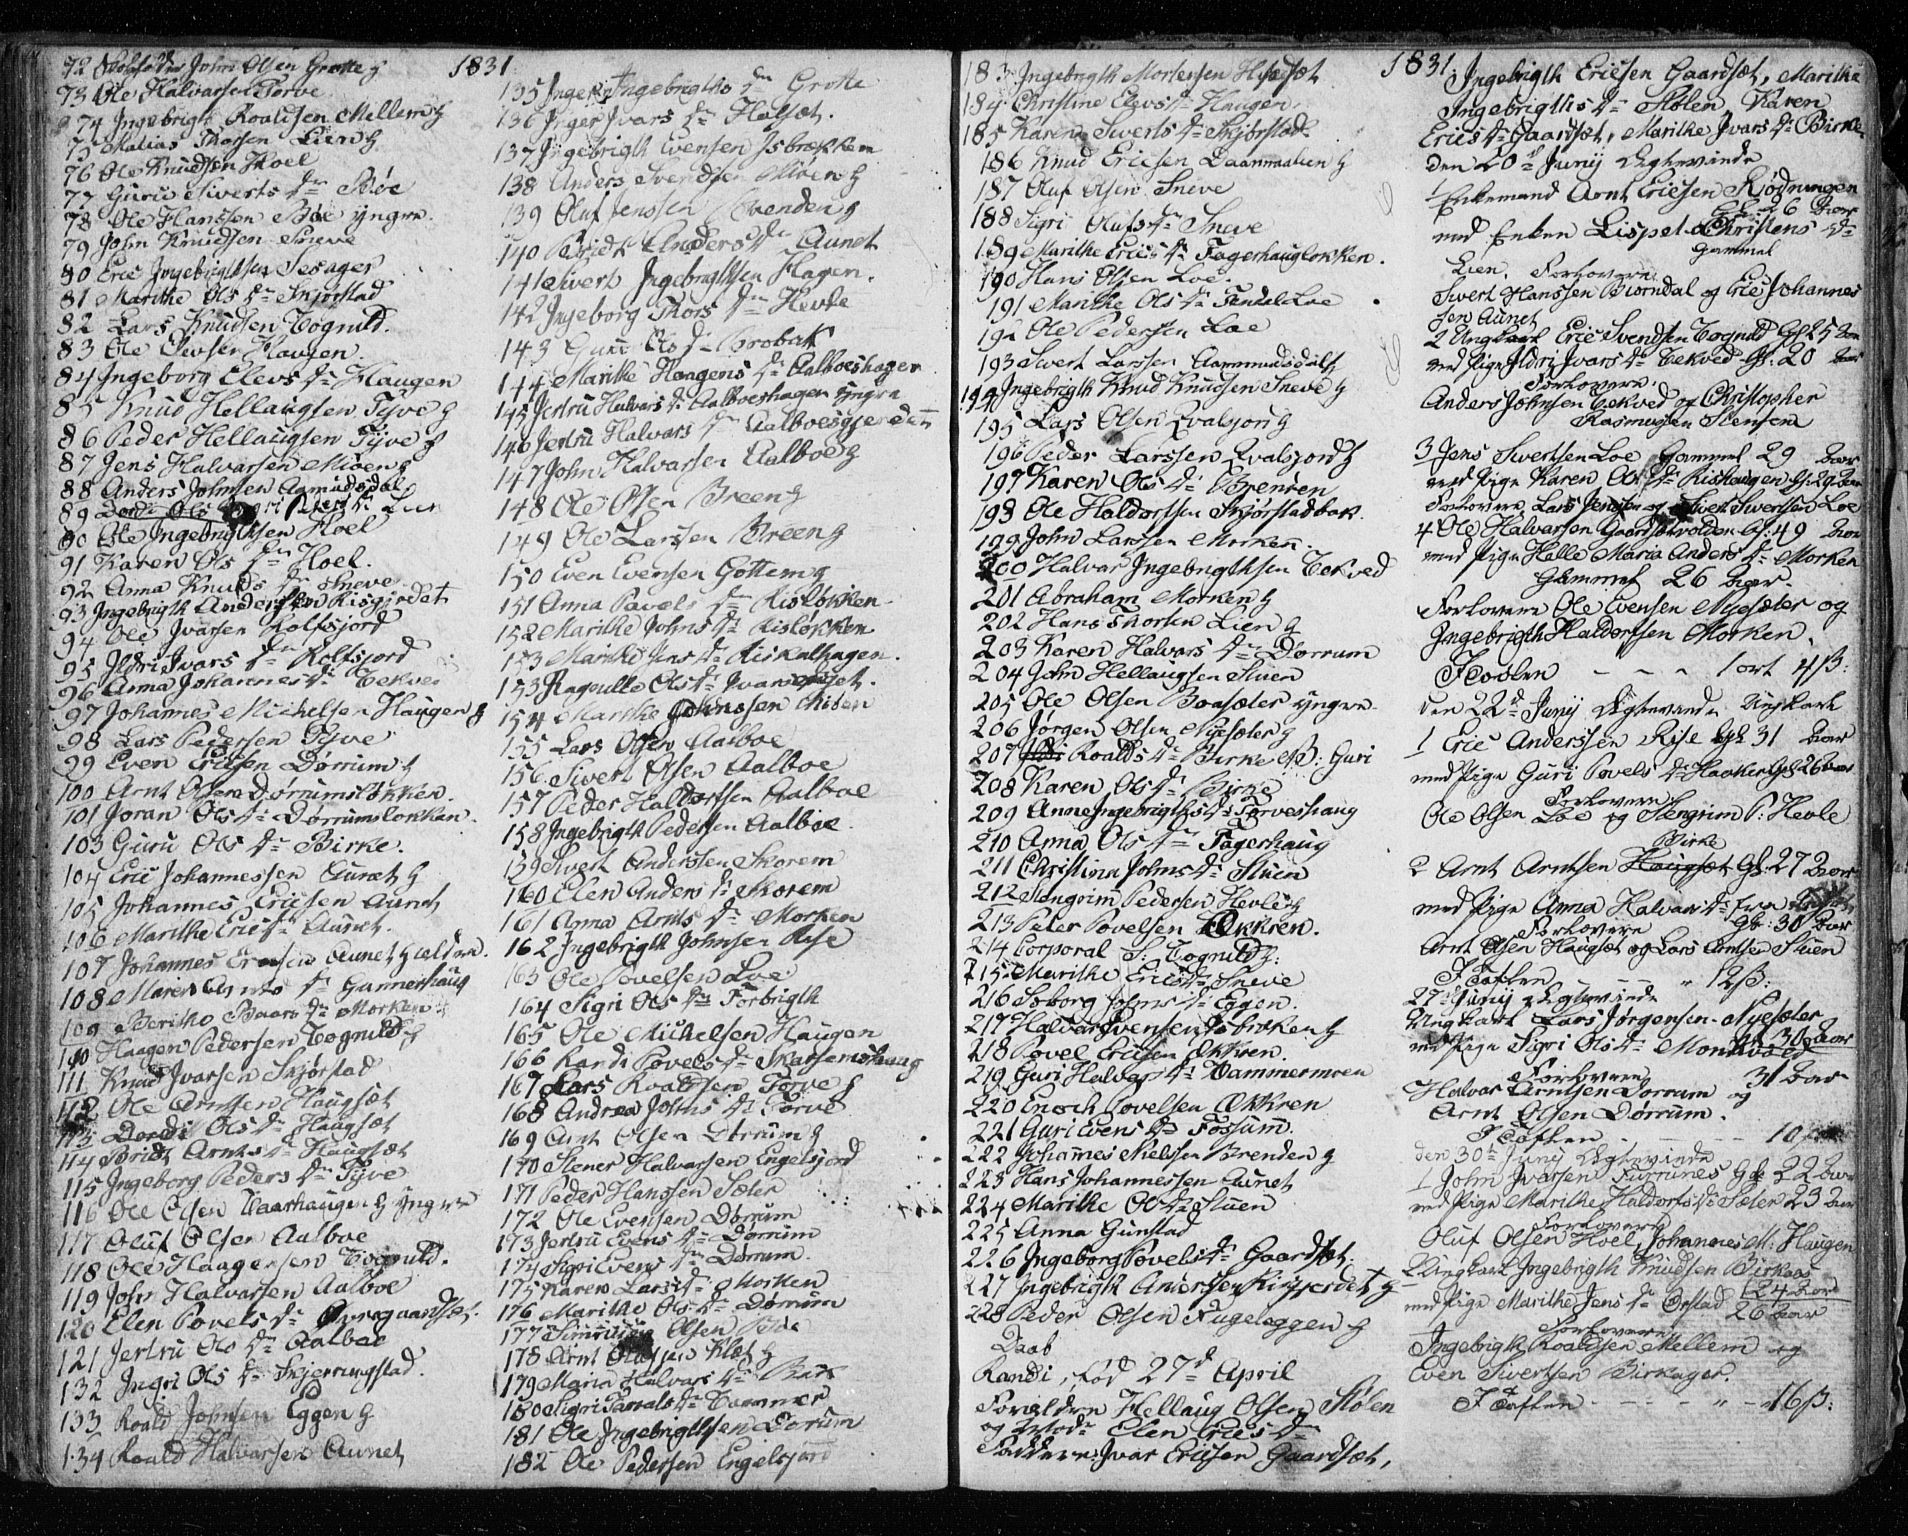 1831
73 Ole Halvarsen Torve
74 Ingebrigt Roaldsen Mellem
75 Matias Thorsen Lien
76 Ole Knudsen Hoel
77 Guru Siverts Dr Böe
78 Ole Hanssen Böe yngre
79 John Knudsen Sneve
80 Eric Ingebrigtsen Sesager
81 Marithe Ols Dr Skjörstad
82 Lars Knudsen Tognuld
83 Ole Haugen
84 Ingeborg Elevs Dr Haugen
85 Knud Hellaugsen Tyve
86 Peder Hellaugsen Tyve
87 Jens Halvarsen Moen
88 Anders Johnsen Aamundsdal
89
90 Ole Ingebrigtsen Hoel
91 Karen Ols Dr Hoel
92 Anna Knuds Dr Sneve
93 Ingebrigth Andersen Risgjerdet
94 Ole Ivarsen Rolfsjord
95 Ildri Ivars Dr Rolfsjord
96 Anna Johannes Dr Tekved
97 Johannes Michelsen Haugen
98 Lars Pedersen Tyve
99 Even Ericsen Dörrum
100 Arnt Olsen Dörrumslökken
101 Joran Ols Dr Dörrumslokken
103 Guru Ols Dr Birke
104 Eric Johannessen Aunet
105 Johannes Ericsen Aunet
106 Marithe Erics Dr Aunet
107 Johannes Ericsen Aunet ældre
108 Maren Arnts Dr Gunnershaug
109 Berithe Baars Dr Morken
110 Haagen Pedersen Tognuld
111 Knud Ivarsen Skjörstad
112 Ole Arntsen Haugset
113 Dordi Ols Dr Haugset
114 Bridt Arnts Dr Haugset
115 Ingeborg Peders Dr Tyve
116 Ole Olsen Vaarhaugen yngre
117 Oluf Olsen Aalboe
118 Ole Haagensen Tognuld
119 John Halvarsen Aalboe
120 Elen Povels Dr
121 Jertru Ols Dr Aalboe
132 Ingri Ols Dr Skjerringstad
133 Roald Johnsen Eggen
134 Roald Halvarsen Aunet
135 Inger Ingebrigths Dr Grotte
136 Inger Ivars Dr Halset
137 Ingebrigth Evensen Isbrekken
138 Anders Svendsen Moen
139 Oluf Jenssen Brenden
140 Bridt Anders Dr Aunet
141 Sivert Ingebrigthsen Hagen
142 Ingeborg Thors Dr Hevle
143 Guru Ols Dr Brobak
144 Marithe Haagens Dr Aalboeshagen
145 Jertru Halvars Dr Aalboeshagen yngre
146 Jertru Halvars Dr Aalboesgjerden
147 John Halvarsen Aalboe
148 Ole Olsen Breen
149 Ole Larssen Breen
150 Even Evensen Gottem
151 Anna Pavels Dr Rislokken
152 Marithe Johns Dr Rislokken
153 Marithe Jens Dr Riskalhagen
153 Ragnille Ols Dr
154 Marithe Johnssen
155 Lars Olsen Aalboe
156 Sivert Olsen Aalboe
157 Peder Haldorsen Aalboe
158 Ingebrigth Pedersen Aalboe
159 Sivert Anderssen Skorem
160 Elen Anders Dr Skorem
161 Anna Arnts Dr Morken
162 Ingebrigth Johnsen Rise
163 Ole Povelsen Loe
164 Sigri Ols Dr Forbrigth
165 Ole Michelsen Haugen
166 Randi Povels Dr Skarsemshaug
167 Lars Roaldsen Torve
168 Andrea Johns Dr Torve
169 Arnt Olsen Dörrum
170 Stener Halvarsen Engelsjord
171 Peder Hanssen Sæter
172 Ole Evensen Dörrum
173 Jertru Evens Dr Dörrum
174 Sigri Evens Dr Dörrum
175 Karen Lars Dr Morken
176 Marithe Ols Dr Dörrum
177 Olsen Böe
178 Arnt Klæt
179 Maria Halvars Dr
180 Sigri Dr Tammer
181 Ole Ingebrigthsen Dorum
182 Ole Pedersen Engelsjord
183 Ingebrigth Mortensen
184 Christine Elevs Dr Haugen
185 Karen Siverts Dr Skjörstad
186 Knud Ericsen
187 Oluf Olsen Sneve
188 Sigri Olufs Dr Sneve
189 Marithe Erics Dr Fagerhauglokken
190 Hans Olsen Loe
191 Marithe Ols Dr
192 Ole Pedersen Loe
193 Sivert Larssen Aammundsdal
194 Ingebrigth Knud Knudsen Sneve
195 Lars Olsen Qvalsjord
196 Peder Larssen Qvalsjord
197 Karen Ols Dr Brenden
198 Ole Haldorssen Skjörstadbak
199 John Larssen Morken
200 Halvar Ingebrigthsen Tekved
201 Abraham Morken
202 Hans Thorsen Lien
203 Karen Halvars Dr Dorrum
204 John Hellaugsen Stuen
205 Ole Olsen Boesæter yngre
206 Jörgen Olsen Nyesæter
207 Roalds Dr Birke NB: Guri
208 Karen Ols Dr Birke
209 Anne Ingebrigths Dr Torveshaug
210 Anna Ols Dr Fagerhaug
211 Christina Johns Dr Stuen
212 Stengrim Pedersen Hevle
213 Peter Povelsen Ökkren
214 Corporal S: Tognuld
215 Marithe Erics Dr Sneve
216 Soborg Johns Dr Eggen
217 Halvar Ivensen Isbrekken
218 Povel Ericsen Økkren
219 Guri Halvars Dr Tammermoen
220 Enoch Povelsen Økkren
221 Guri Evens Dr Fossum
222 Johannes Nielssen Brenden
223 Hans Johannessen Aunet
224 Marithe Ols Dr Stuen
225 Anna Gunstad
226 Ingeborg Povels Dr Gaardset
227 Ingebrigth Andersen Risgjerdet
228 Peder Olsen Fugeleggen
Daab
Randi, föd 27de April
Forældre Hellaug Olsen Stölen
og Mod: Elen Erics Dr
Faddere: Ivar Ericsen Gaardset,
1831
Ingebrigth Ericsen Gaardset, Marithe
Ingebrigths Dr Stölen Karen
Erics Dr Gaardset, Marithe Ivars Dr Birke
Den 20de Junij Egtevinde
1 Enkemand Arnt Ericsen Rjödningen
med Enken Lispet Christens Dr
Gammel
Lien. Forlovere
Sivert Hanssen Biörndal og Eric Johannes
sen Aunet
2 Ungkarl Eric Svendsen Tognuld Gl: 25 Aar
med Pige Ildri Ivars Dr Tekved Gl: 20 Aar
Forlovere
Anders Johnsen Tekved og Christopher
Rasmusen Stensem
3 Jens Sivertsen Loe Gammel 29 Aar
med Pige Karen Ols Dr Riskaugen Gl: 29 Aar
Forlovere Lars Jensen og Siver Sivertsen Loe
4 Ole Halvarsen Gaardsetvolden Gl: 49 Aar
med Pige Helle Maria Anders Dr Morken
Gammel 26 Aar
Forlovere Ole Evensen Nyesæter og
Ingebrigth Haldorsen Morken
I Taflen - - - 1 ort 4 ß:
Den 22de Junij Egtevinde Ungkarl
1 Eric Anderssen Rise Gl 31 Aar
med Pige Guri Povels Dr Haaker Gl 26 Aar
Forlovere
Ole Olsen Loe og Stengrim P: Hevle
Birke
2 Arnt Arntsen Haugset Gl: 27 Aar
med Pige Anna Halvars Dr fra
Gl: 30 Aar
Forlovere
Arnt Olsen Haugset og Lars Arntse Stuen
I Taflen " 12 ß:
27de Junij Egtevinde
Ungkarl Lars Jörgensen Nyesæter
30 Aar
med Pige Sigri Ols Dr
31 Aar
Forlovere
Halvar Arntsen Dorrum og
Arnt Olsen Dörrum
I Taflen - - - 10
den 30te Junij Egtevinde
1 John Ivarsen Furrunes Gl 22 Aar
med Pige Marithe Haldors Dr Sæter 23 Aar
Forlovere
Oluf Olsen Hoel, Johannes M: Haugen
2 Ungkarl Ingebrigth Knudsen Birkaas
24 Aar
med Pige Marithe Jens Dr Örstad 26 Aar
Forlovere
Ingebrigth Roaldsen Mellem og
Even Sivertsen Birkager
I Taflen - - - " - 16 ß: